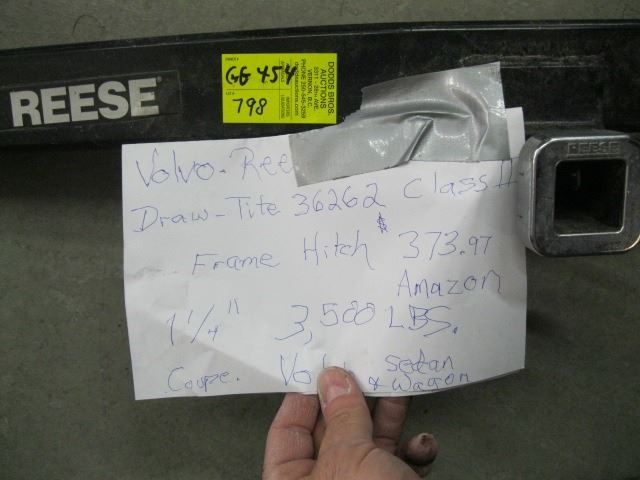 REESE
GG 454
798
DODDS BROS.
AUCTIONS
VERNON, B.C.
REESE
Volvo - Ree
Draw-Tite 36262 Class II
Frame Hitch $373.97
Amazon
1 1/4" 3,500 LBS.
Coupe. Volvo sedan
& wagon